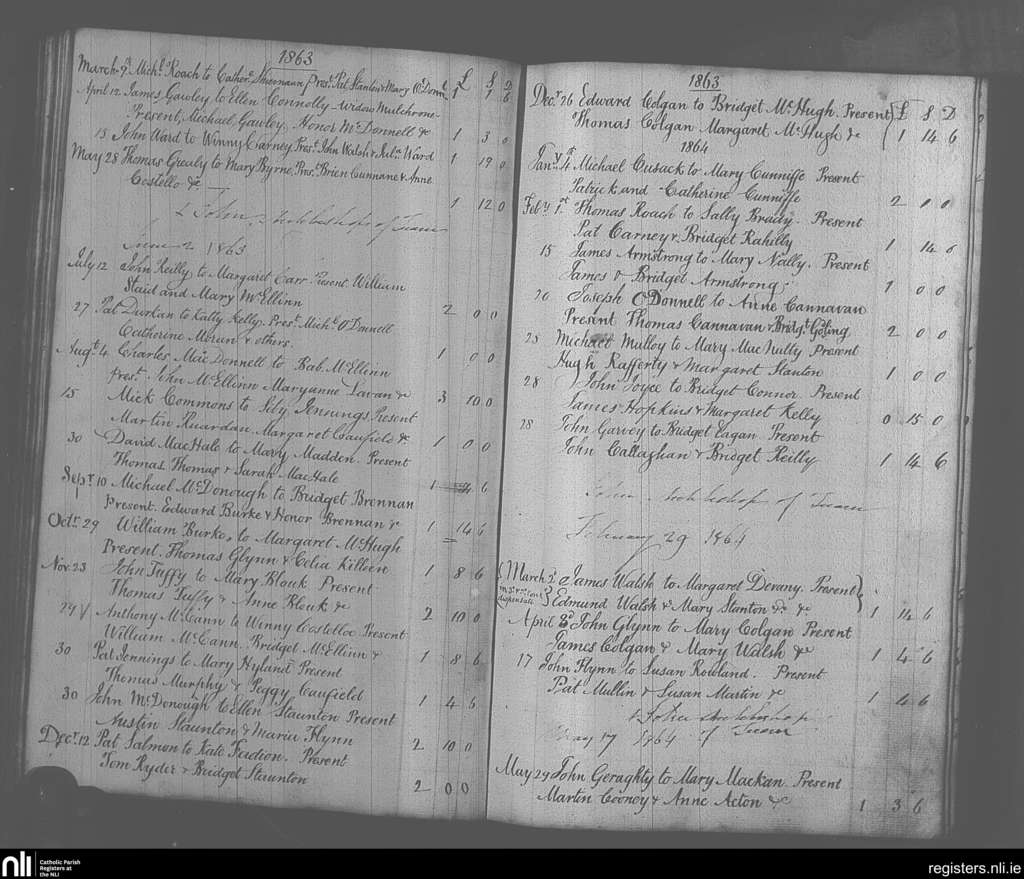 1863
£ S D
March 9th Michl Roach to Cather. Prest. Pat Stanton & Mary O'Donnl 1 7 6
April 12 James Gawley to Ellen Connolly - widow Mulchrone
Present, Michael Gawley Honor McDonnell &c 1 3 0
15 John Ward to Winny Carney Prest. John Walsh & Julia Ward 1 19 0
May 28 Thomas Grealy to Mary Byrne, Prest. Brien Cunnane & Anne
Costello &c 1 12 0
+ John Archbishop of Tuam
June 2 1863
July 12 John Reilly to Margaret Carr Present William
Staid and Mary McEllinn 2 0 0
27 Pat Durkan to Katty Kelly Prest. Michl O'Donnell
Catherine Morun & others. 1 0 0
Augt 4 Charles MacDonnell to Bab. McEllinn
prest. John McEllinn Maryanne Lavan &c 3 10 0
15 Mick Commons to Jennings Present
Martin Ruardan Margaret Caufield &c 1 0 0
30 David MacHale to Mary Madden Present
Thomas Thomas & Sarah MacHale
Sepr 10 Michael McDonough to Bridget Brennan 1 6
present. Edward Burke & Honor Brennan &c
Octr. 29 William Burke to Margaret McHugh 1 14 6
Present. Thomas Glynn & Celia Killeen
Nov. 23 John Tuffy to Mary Blouk Present 1 8 6
Thomas Tuffy & Anne Blouk &c
24 Anthony McCann to Winny Costelloe Present 2 10 0
William McCann. Bridget McEllinn &
30 Pat Jennings to Mary Hyland Present 1 8 6
Thomas Murphy & Peggy Caufield
30 John McDonough to Ellen Staunton Present 1 4 6
Austin Staunton & Maria Flynn
Decr. 12 Pat Salmon to Kate Present 2 10 0
Tom Ryder & Bridget Staunton 2 0 0
1863
£ S D
Decr 26 Edward Colgan to Bridget McHugh. Present
Thomas Colgan Margaret McHugh &c 1 14 6
1864
Jany 4th Michael Cusack to Mary Cunniffe Present
Patrick and Catherine Cunniffe 2 0 0
Feby 1st Thomas Roach to Sally Brady. Present
Pat Carney & Bridget Rahilly 1 14 6
15 James Armstrong to Mary Nally. Present
James & Bridget Armstrong 1 0 0
20 Joseph O'Donnell to Anne Cannavan
Present Thomas Cannavan & Bridgt Goling 2 0 0
25 Michael Mulloy to Mary MacNulty Present
Hugh Rafferty & Margaret Stanton 1 0 0
28 John Joyce to Bridget Connor. Present
James Hopkins & Margaret Kelly 0 15 0
28 John Garvey to Bridget Eagan Present
John Callaghan & Bridget Reilly 1 14 6
John Archbishop of Tuam
February 29 1864
March 2d James Walsh to Margaret Devany. Present
dispensate Edmund Walsh & Mary Stanton &c &c 1 14 6
April 3d John Glynn to Mary Colgan Present
James Colgan & Mary Walsh &c 1 4 6
17 John Flynn to Susan Rowland. Present
Pat Mullin & Susan Martin &c 1 4 6
+ John Archbishop
May 17 1864 of Tuam
May 29 John Geraghty to Mary Macken. Present
Martin Cooney & Anne Acton &c 1 3 6
nli
Catholic Parish
Registers at
the NLI
registers.nli.ie